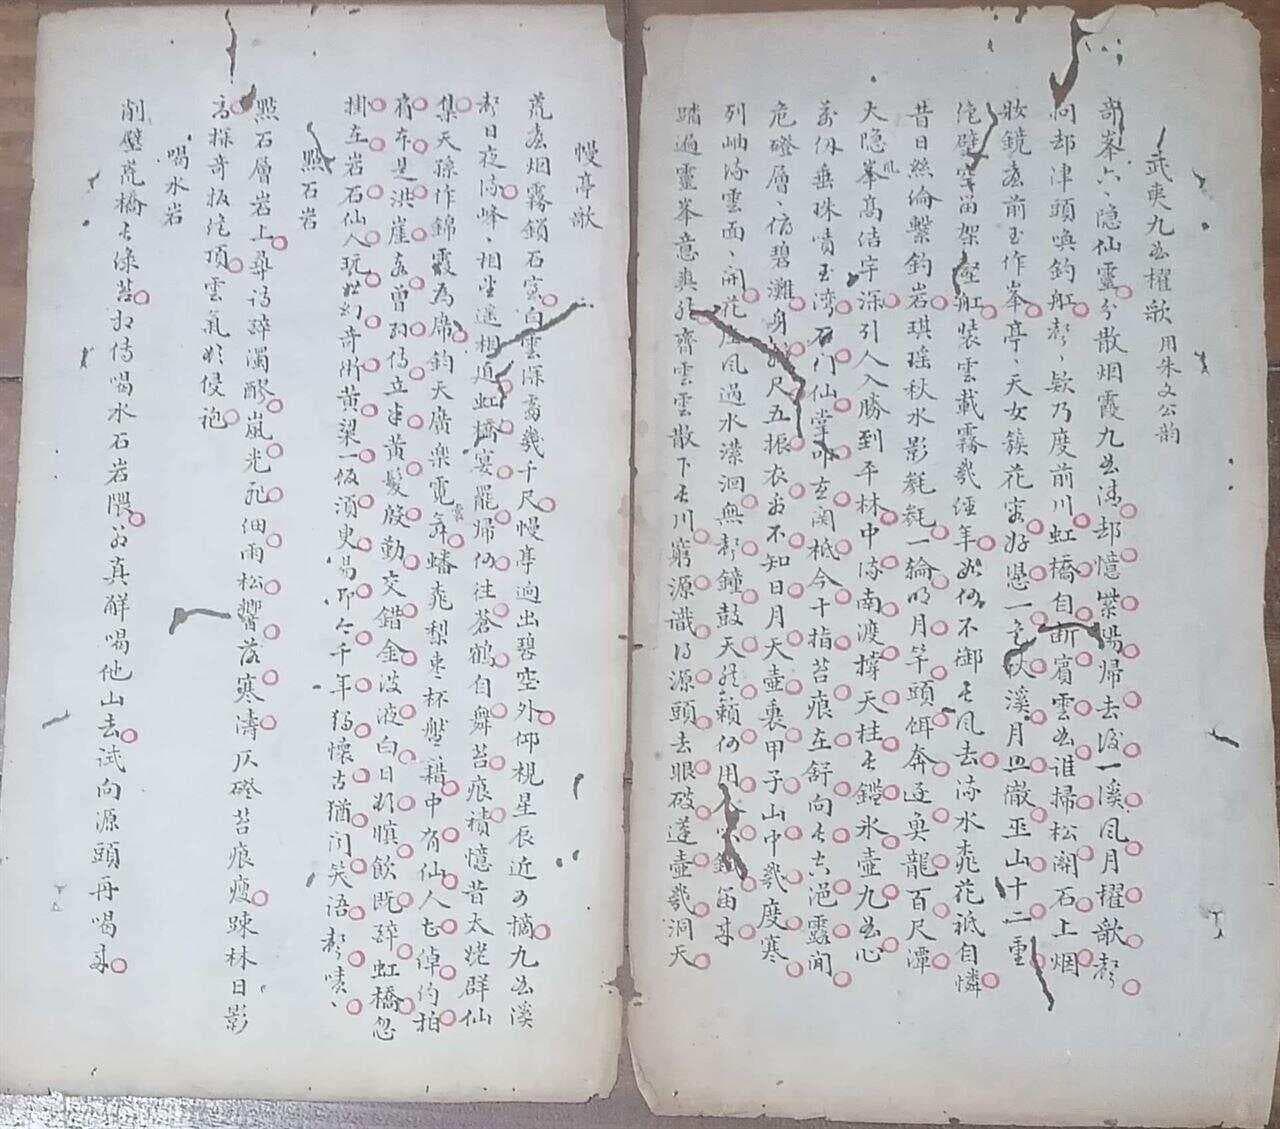 武夷九曲櫂歌 用朱文公韵
奇峯六六隐仙靈分散烟霞九曲清却憶紫陽歸去後一溪風月櫂歌聲
問却津頭喚釣舡聲聲欸乃度前川虹橋自斷賓雲曲誰掃松關石上烟
妝鏡臺前玉作峯亭亭天女簇花容好邀一 秋溪月照徹巫山十二重
絶壁空留架壑舡裝雲載霧幾經年如何不御長風去流水桃花祗自憐
昔日絲綸繫釣岩琪瑶秋水影毿毿一輪明月竿頭餌奔逐魚龍百尺潭
大隐峯高結宇深引人入勝到平林中流南渡撑天柱長鑑氷壺九曲心
萬仞垂珠噴玉湾石门仙掌叩玄関祗今十指苔痕在舒向長空浥露閒
危磴層層仿碧灘身 尺五振衣看不知日月天壶裏甲子山中幾度寒
列岫流雲面面開花 風過水濚洄無聲鐘鼓天然籟何用 鐵笛來
踏遍靈峯意爽然齊雲雲散下長川窮源識得源頭去眼破蓬壺幾洞天
慢亭歌
荒臺烟霧鎖石室白雲深霱幾千尺慢亭逈出碧空外仰視星辰近可摘九曲溪
聲日夜流峰峰相坐遥相逈虹橋宴罷歸何往蒼鶴自舞苔痕積憶昔太姥群仙
集天孫作錦霞為席鈞天廣樂霓裳舞蟠桃梨枣杯盤藉中有仙人七倬約拍
肩本是洪崖客曾孙侍立半黄髮殷勤交錯金波白日將瞋飲既醉虹橋忽
掛在岩石仙人玩世幻奇術黄粱一饭須臾易即今千年獨懷古猶问笑语聲嘖嘖
點石岩
點石層岩上尋詩醉濁醪嵐光飛细雨松響落寒濤仄磴苔痕瘦疎林日影
高探奇扳絶頂雲氣欲侵袍
喝水岩
削壁荒橋長緑苔相傳喝水石岩隈翁真解喝他山去試向源頭再喝來